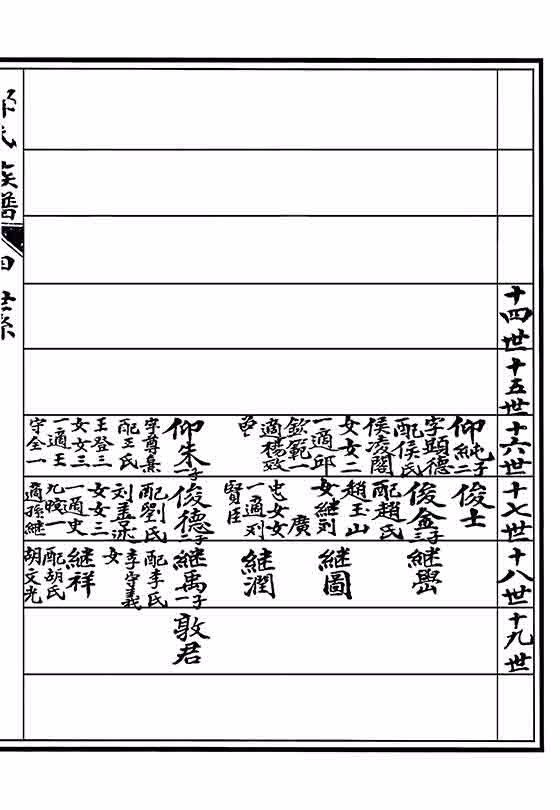 十四世
十五世
十六世
十七世
十八世
十九世
仰純二子
字顕德
配侯氏
侯凌閣
女女二
一適邱
欽範一
適楊致
仰朱一子
字尊熹
配王氏
王登三
女女三
一適王
守全一
俊士
俊金三子
配趙氏
趙玉山
女継列
廣
屯女女
一適刘
賢臣
俊德二子
配劉氏
刘善述
女女三
一適史
九晚一
適孫継
継嶨
継圖
継潤
継禹一子
配李氏
李守義
女
継祥
配胡氏
胡文光
敦君
氏族譜
四
世系